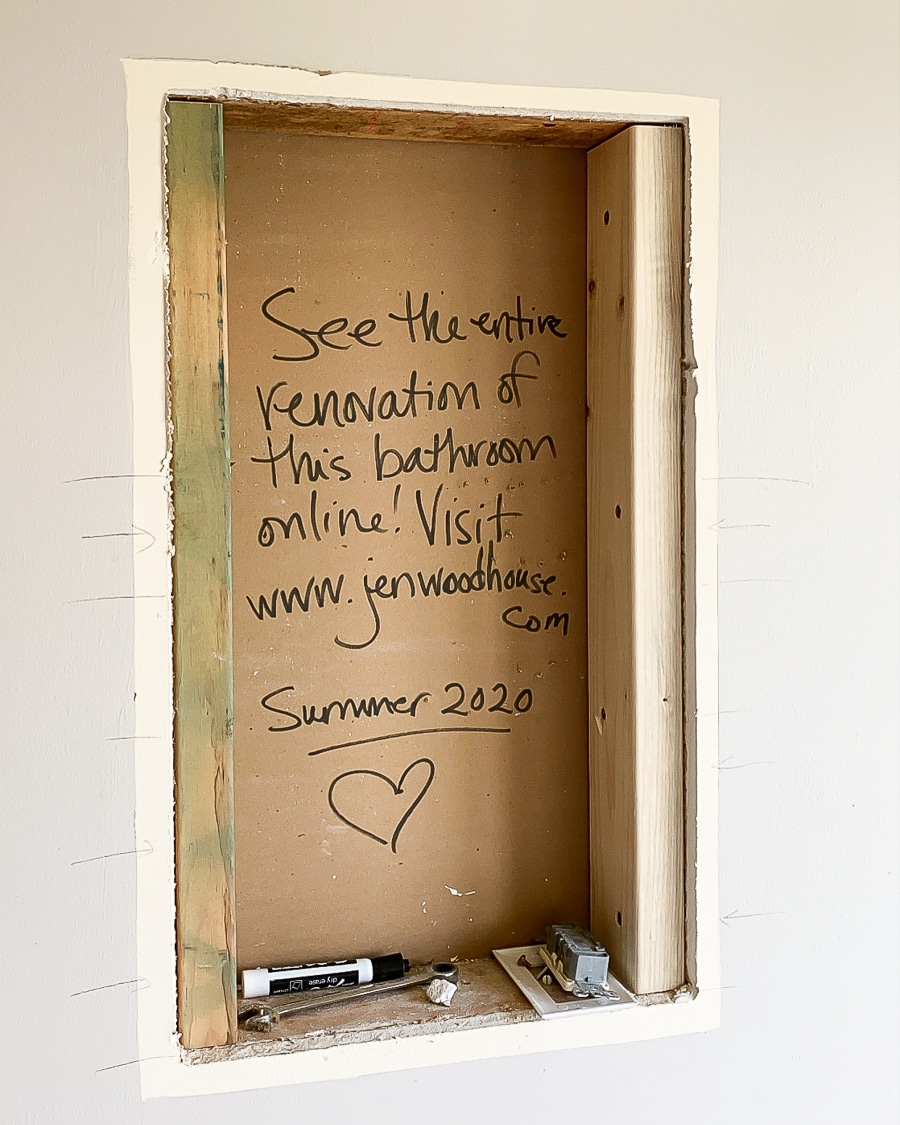 See the entire
renovation of
this bathroom
online! Visit
www.jenwoodhouse.
com
Summer 2020
dry erase